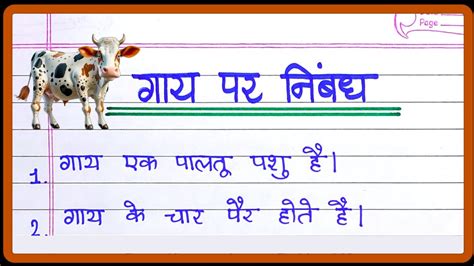 Page
गाय पर निबंध
1. गाय एक पालतू पशु है।
2. गाय के चार पैर होते है।